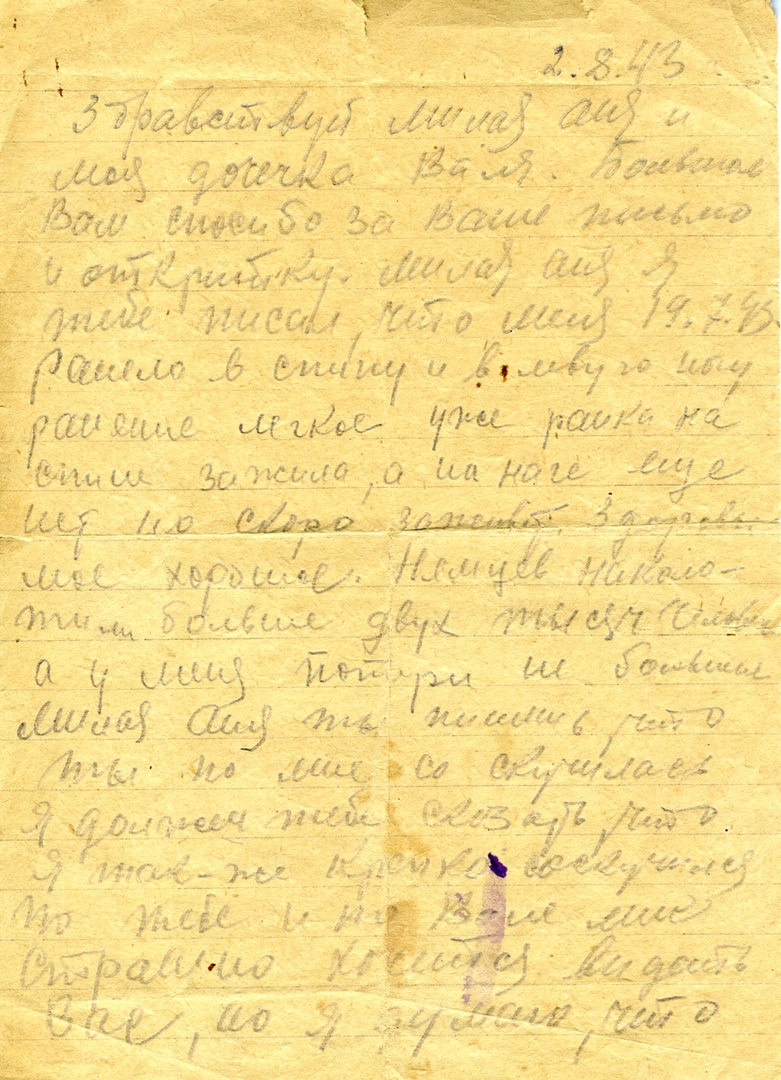 2.8.43
Здравствуй милая Аня и
моя дочечка Валя. Большое
Вам спосибо за Ваше письмо
и открытку. Милая Аня я
тебе писал, что меня 19.7.43
ранело в спину и в левую ногу
ранение легкое уже ранка на
спине зажила, а на наге еще
нет но скоро заживет. Здоровье
мое хорошее. Немцев наколо-
жили больше двух тысяч человек
а у меня потери не большие
Милая Аня ты пишишь, что
ты по мне со скучилась
Я должен тебе сказать, что
Я так-же крепко соскучился
по тебе и по Вале мне
Страшно хочится видать
Вас, но я думаю, что